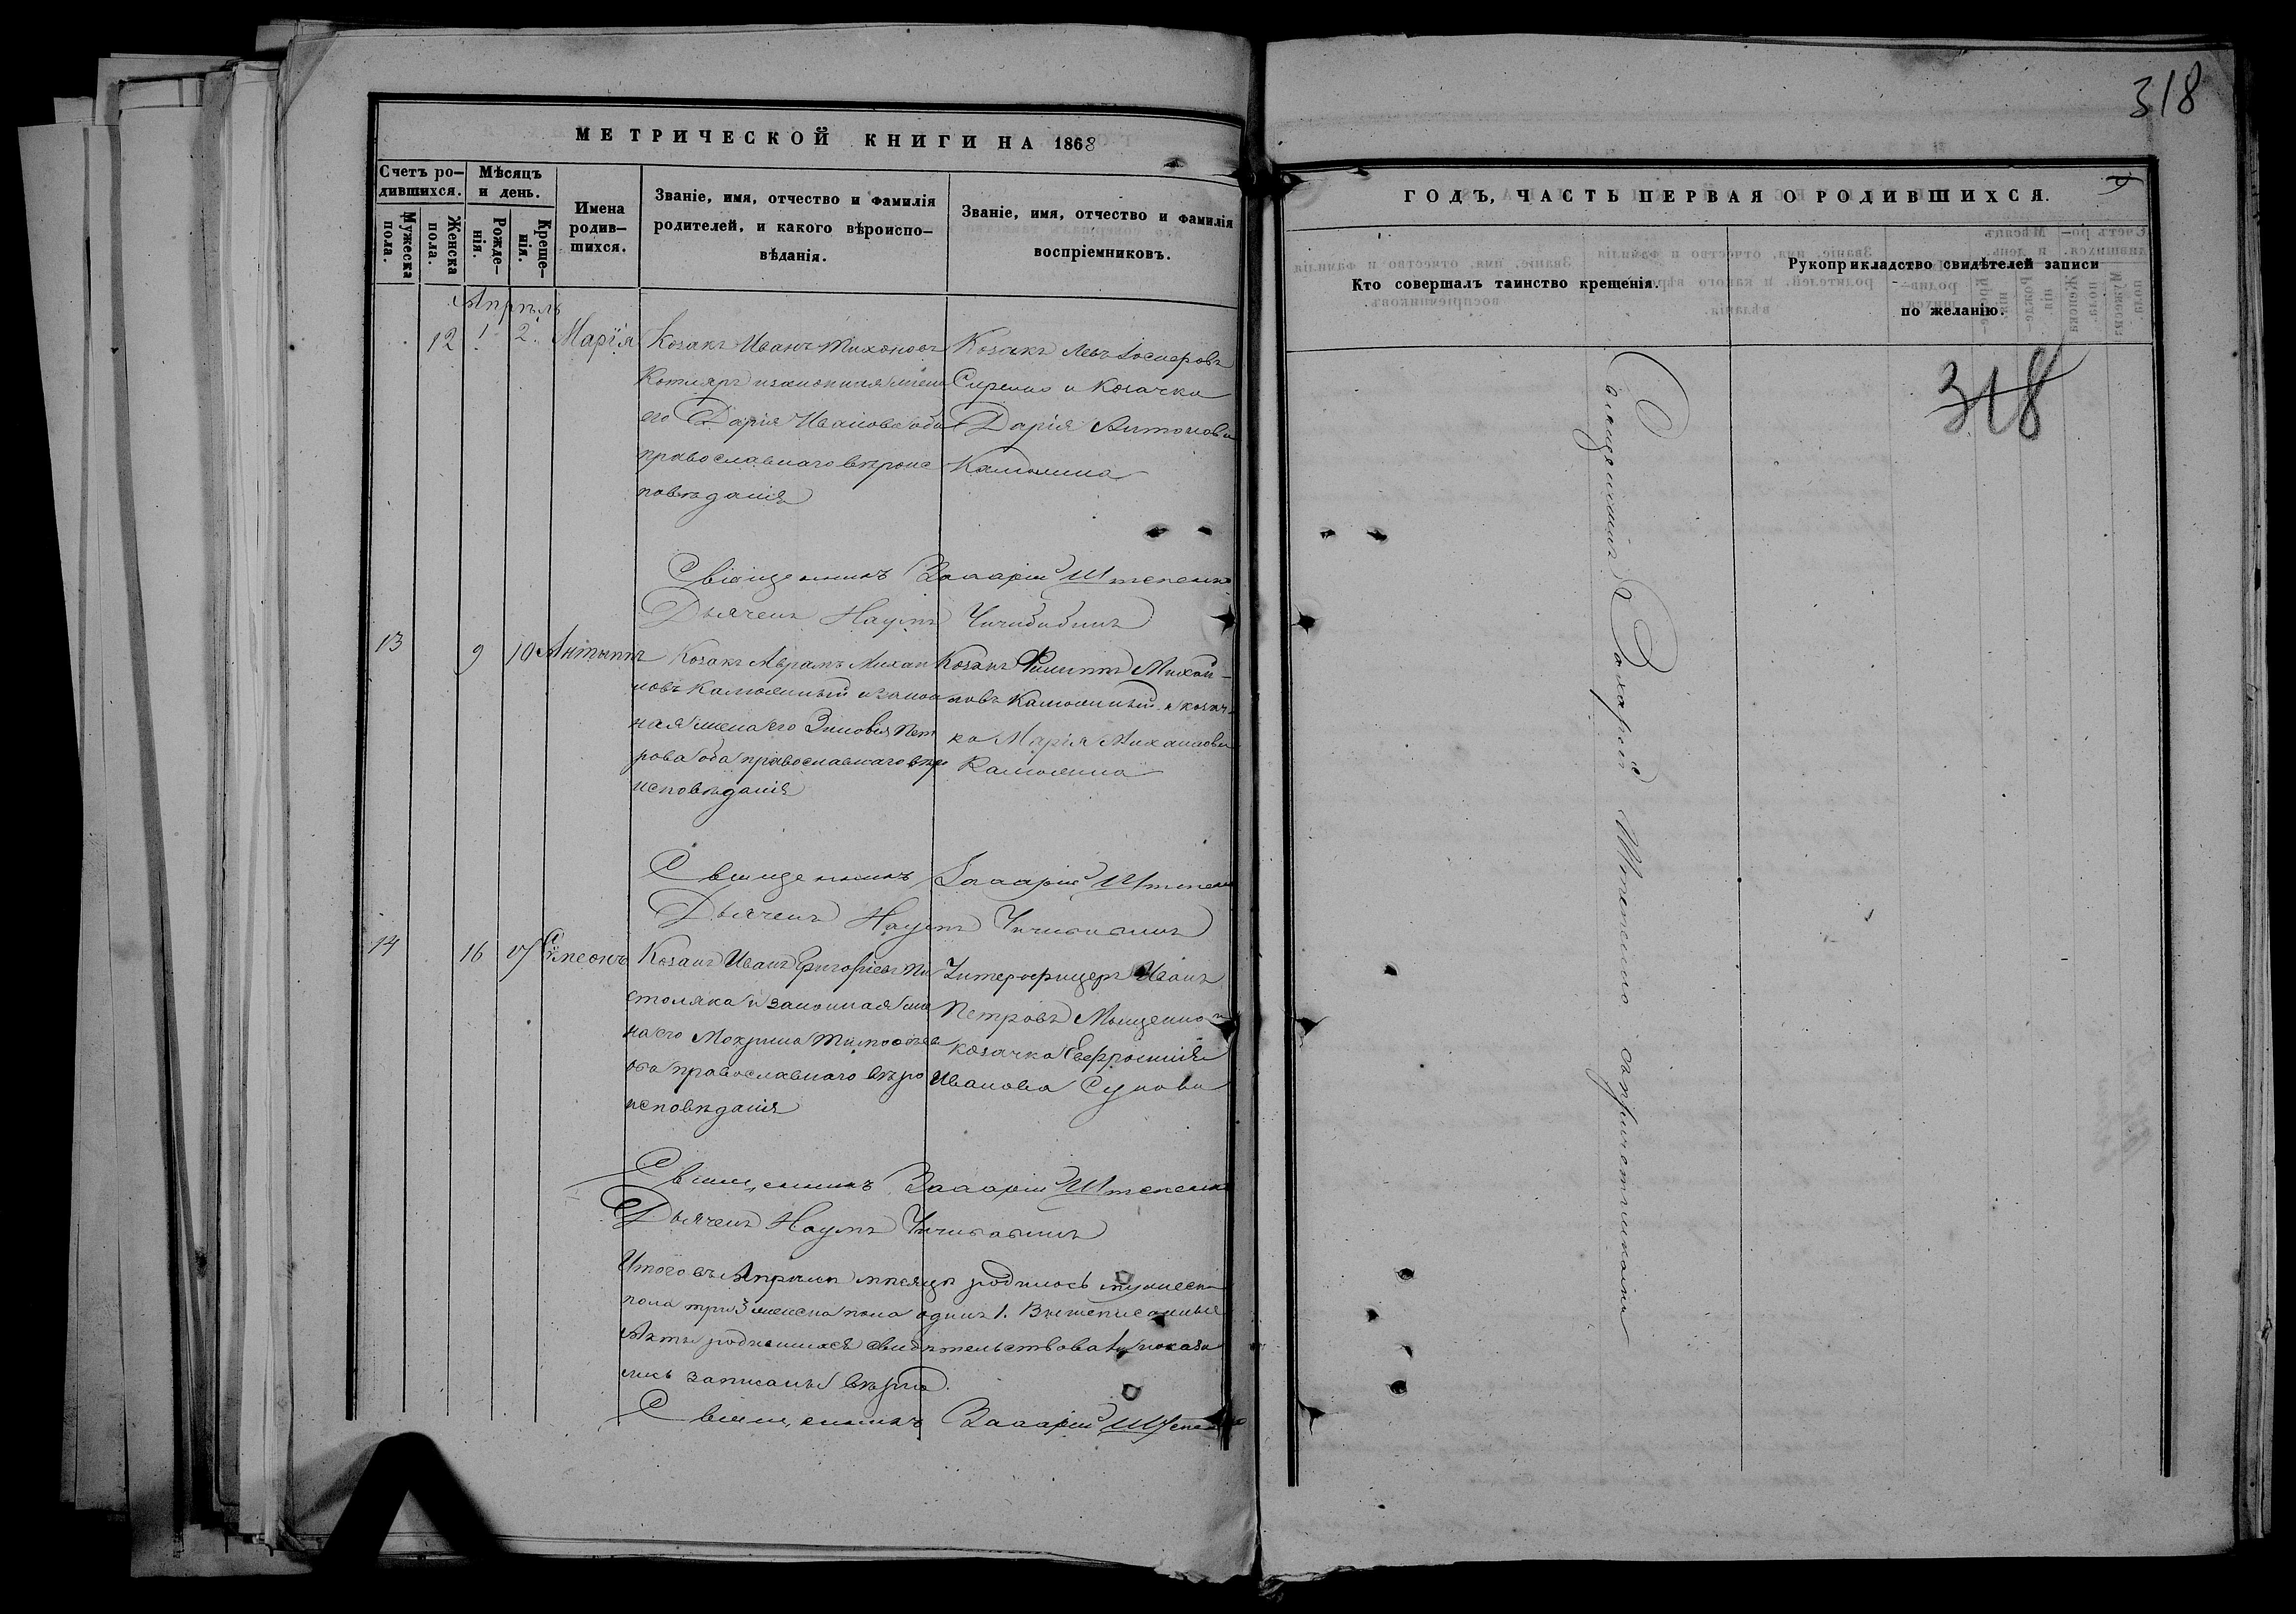 318
МЕТРИЧЕСКОЙ КНИГИ НА 1868
ГОДЪ, ЧАСТЬ ПЕРВАЯ О РОДИВШИХСЯ.
Счетъ ро-
дившихся.
Мужеска
пола.
Женска
пола.
Мѣсяцъ
и день.
Рожде-
нія.
Креще-
нія.
Имена
родив-
шихся.
Званіе, имя, отчество и фамилія
родителей, и какого вѣроиспо-
вѣданія.
Званіе, имя, отчество и фамилія
воспріемниковъ.
Кто совершалъ таинство крещенія.
Рукоприкладство свидѣтелей записи
по желанію.
Апрѣль
12 1 2 Марія
Козакъ Иванъ Тихоновъ
Котляръ и законная жена
его Дарія Иванова оба
православнаго вѣроис
повѣданія
Козакъ Левъ
и Козачка
Дарія Антонова
Священникъ Захарій Штепенко
Дьячекъ Наумъ
13 9 10 Антыпъ
Козакъ Аврамъ Михаи
ловъ и закон
ная жена его Зиновія Пет
рова оба православнаго вѣро
исповѣданія
Козакъ Филиппъ Михаи-
ловъ и козач-
ка Марія Михаилова
Священникъ Захарій Штепенко
Дьячекъ Наумъ
14 16 17 Симеонъ
Козакъ Иванъ Григоріевъ Пи
столяка и законная же
на его Мокрина Тимофѣева
оба православнаго вѣро
исповѣданія
Унтерофицеръ Иванъ
Петровъ и
козачка Евфросинія
Иванова
Священникъ Захарій Штепенко
Дьячекъ Наумъ
Итого въ Апрѣлѣ мѣсяцѣ родилось мужеск
пола три 3 женска пола одинъ 1. Вышеписанные
Акты родившихся свидѣтельствова
лись записаны вѣрно.
Священникъ Захарій Штепенко
Священникъ Захарій Штепенко съ причетниками
318